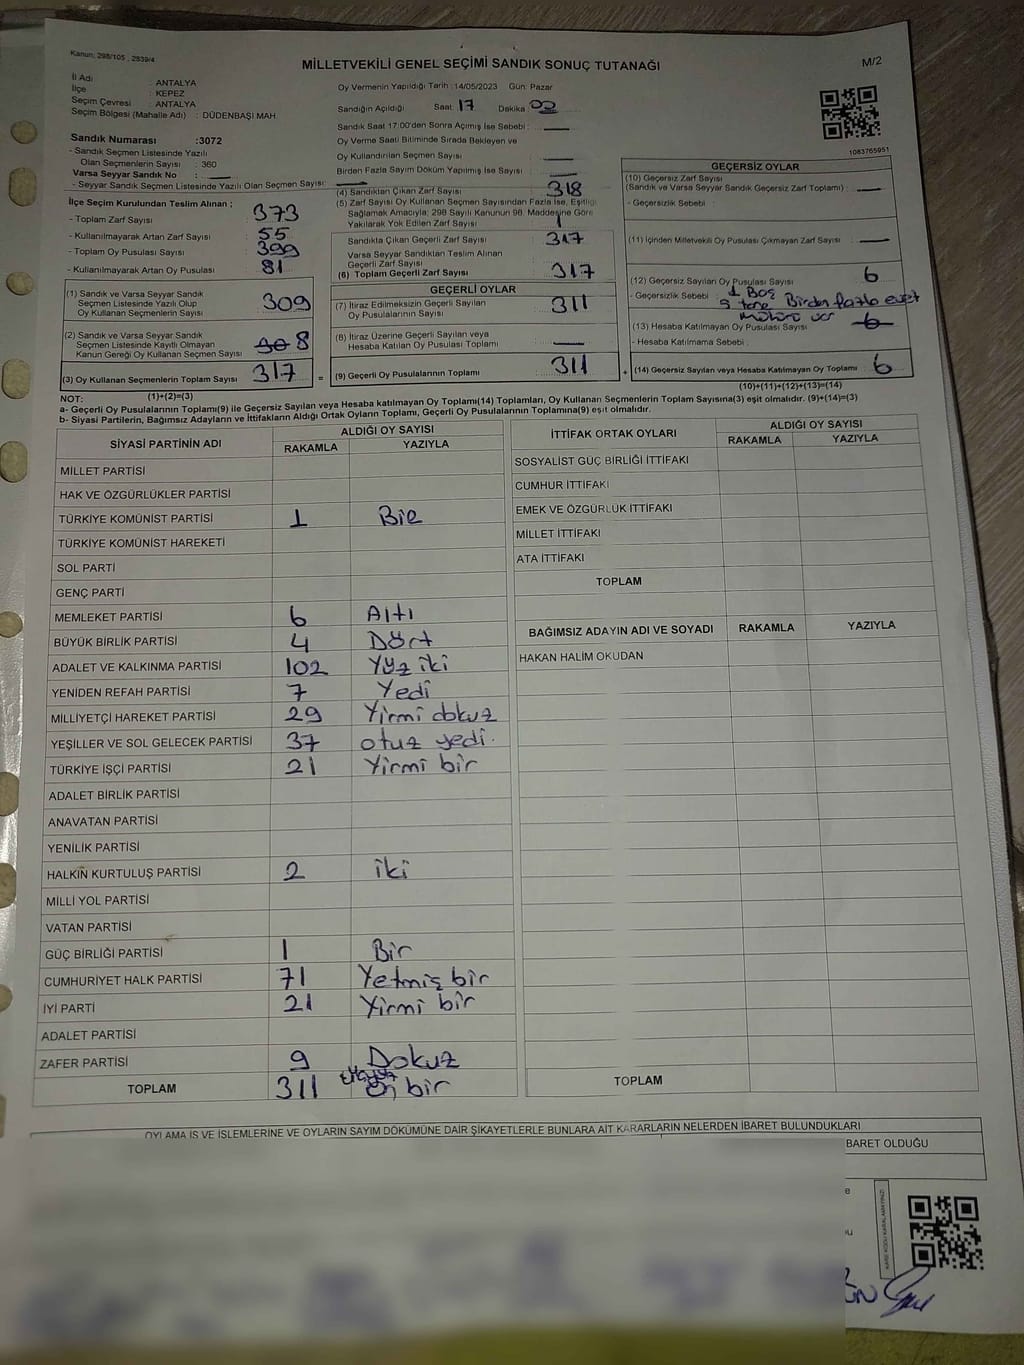 Kanun: 298/105 , 2839/4
MİLLETVEKİLİ GENEL SEÇİMİ SANDIK SONUÇ TUTANAĞI
M/2
İl Adı : ANTALYA
İlçe : KEPEZ
Seçim Çevresi : ANTALYA
Seçim Bölgesi (Mahalle Adı) : DÜDENBAŞI MAH.
Sandık Numarası :3072
- Sandık Seçmen Listesinde Yazılı
Olan Seçmenlerin Sayısı : 360
Varsa Seyyar Sandık No
- Seyyar Sandık Seçmen Listesinde Yazılı Olan Seçmen Sayısı:
İlçe Seçim Kurulundan Teslim Alınan ;
- Toplam Zarf Sayısı : 373
- Kullanılmayarak Artan Zarf Sayısı : 55
- Toplam Oy Pusulası Sayısı : 399
- Kullanılmayarak Artan Oy Pusulası : 81
(1) Sandık ve Varsa Seyyar Sandık
Seçmen Listesinde Yazılı Olup
Oy Kullanan Seçmenlerin Sayısı : 309
(2) Sandık ve Varsa Seyyar Sandık
Seçmen Listesinde Kayıtlı Olmayan
Kanun Gereği Oy Kullanan Seçmen Sayısı : 8
(3) Oy Kullanan Seçmenlerin Toplam Sayısı : 317
Oy Vermenin Yapıldığı Tarih :14/05/2023 Gün: Pazar
Sandığın Açıldığı Saat: 17 Dakika: 00
Sandık Saat 17:00'den Sonra Açılmış İse Sebebi :
Oy Verme Saati Bitiminde Sırada Bekleyen ve
Oy Kullandırılan Seçmen Sayısı :
Birden Fazla Sayım Döküm Yapılmış İse Sayısı :
(4) Sandıktan Çıkan Zarf Sayısı : 318
(5) Zarf Sayısı Oy Kullanan Seçmen Sayısından Fazla İse, Eşitliği
Sağlamak Amacıyla; 298 Sayılı Kanunun 98. Maddesine Göre
Yakılarak Yok Edilen Zarf Sayısı : 1
Sandıkta Çıkan Geçerli Zarf Sayısı : 317
Varsa Seyyar Sandıktan Teslim Alınan
Geçerli Zarf Sayısı :
(6) Toplam Geçerli Zarf Sayısı : 317
GEÇERLİ OYLAR
(7) İtiraz Edilmeksizin Geçerli Sayılan
Oy Pusulalarının Sayısı : 311
(8) İtiraz Üzerine Geçerli Sayılan veya
Hesaba Katılan Oy Pusulası Toplamı :
(9) Geçerli Oy Pusulalarının Toplamı : 311
1083765951
GEÇERSİZ OYLAR
(10) Geçersiz Zarf Sayısı
(Sandık ve Varsa Seyyar Sandık Geçersiz Zarf Toplamı) :
- Geçersizlik Sebebi :
(11) İçinden Milletvekili Oy Pusulası Çıkmayan Zarf Sayısı :
(12) Geçersiz Sayılan Oy Pusulası Sayısı : 6
- Geçersizlik Sebebi : 1 Boş
5 tane Birden fazla evet
mühürü var
(13) Hesaba Katılmayan Oy Pusulası Sayısı : 6
- Hesaba Katılmama Sebebi :
(14) Geçersiz Sayılan veya Hesaba Katılmayan Oy Toplamı : 6
NOT: (1)+(2)=(3) (10)+(11)+(12)+(13)=(14)
a- Geçerli Oy Pusulalarının Toplamı(9) ile Geçersiz Sayılan veya Hesaba katılmayan Oy Toplamı(14) Toplamları, Oy Kullanan Seçmenlerin Toplam Sayısına(3) eşit olmalıdır. (9)+(14)=(3)
b- Siyasi Partilerin, Bağımsız Adayların ve İttifakların Aldığı Ortak Oyların Toplamı, Geçerli Oy Pusulalarının Toplamına(9) eşit olmalıdır.
SİYASİ PARTİNİN ADI ALDIĞI OY SAYISI
RAKAMLA YAZIYLA
MİLLET PARTİSİ
HAK VE ÖZGÜRLÜKLER PARTİSİ
TÜRKİYE KOMÜNİST PARTİSİ 1 Bir
TÜRKİYE KOMÜNİST HAREKETİ
SOL PARTİ
GENÇ PARTİ
MEMLEKET PARTİSİ 6 Altı
BÜYÜK BİRLİK PARTİSİ 4 Dört
ADALET VE KALKINMA PARTİSİ 102 Yüz iki
YENİDEN REFAH PARTİSİ 7 Yedi
MİLLİYETÇİ HAREKET PARTİSİ 29 Yirmi dokuz
YEŞİLLER VE SOL GELECEK PARTİSİ 37 otuz yedi.
TÜRKİYE İŞÇİ PARTİSİ 21 Yirmi bir
ADALET BİRLİK PARTİSİ
ANAVATAN PARTİSİ
YENİLİK PARTİSİ
HALKIN KURTULUŞ PARTİSİ 2 iki
MİLLİ YOL PARTİSİ
VATAN PARTİSİ
GÜÇ BİRLİĞİ PARTİSİ 1 Bir
CUMHURİYET HALK PARTİSİ 71 Yetmiş bir
İYİ PARTİ 21 Yirmi bir
ADALET PARTİSİ
ZAFER PARTİSİ 9 Dokuz
TOPLAM 311 üçyüz On bir
İTTİFAK ORTAK OYLARI ALDIĞI OY SAYISI
RAKAMLA YAZIYLA
SOSYALİST GÜÇ BİRLİĞİ İTTİFAKI
CUMHUR İTTİFAKI
EMEK VE ÖZGÜRLÜK İTTİFAKI
MİLLET İTTİFAKI
ATA İTTİFAKI
TOPLAM
BAĞIMSIZ ADAYIN ADI VE SOYADI RAKAMLA YAZIYLA
HAKAN HALİM OKUDAN
TOPLAM
OYLAMA İŞ VE İŞLEMLERİNE VE OYLARIN SAYIM DÖKÜMÜNE DAİR ŞİKAYETLERLE BUNLARA AİT KARARLARIN NELERDEN İBARET BULUNDUKLARI
BARET OLDUĞU